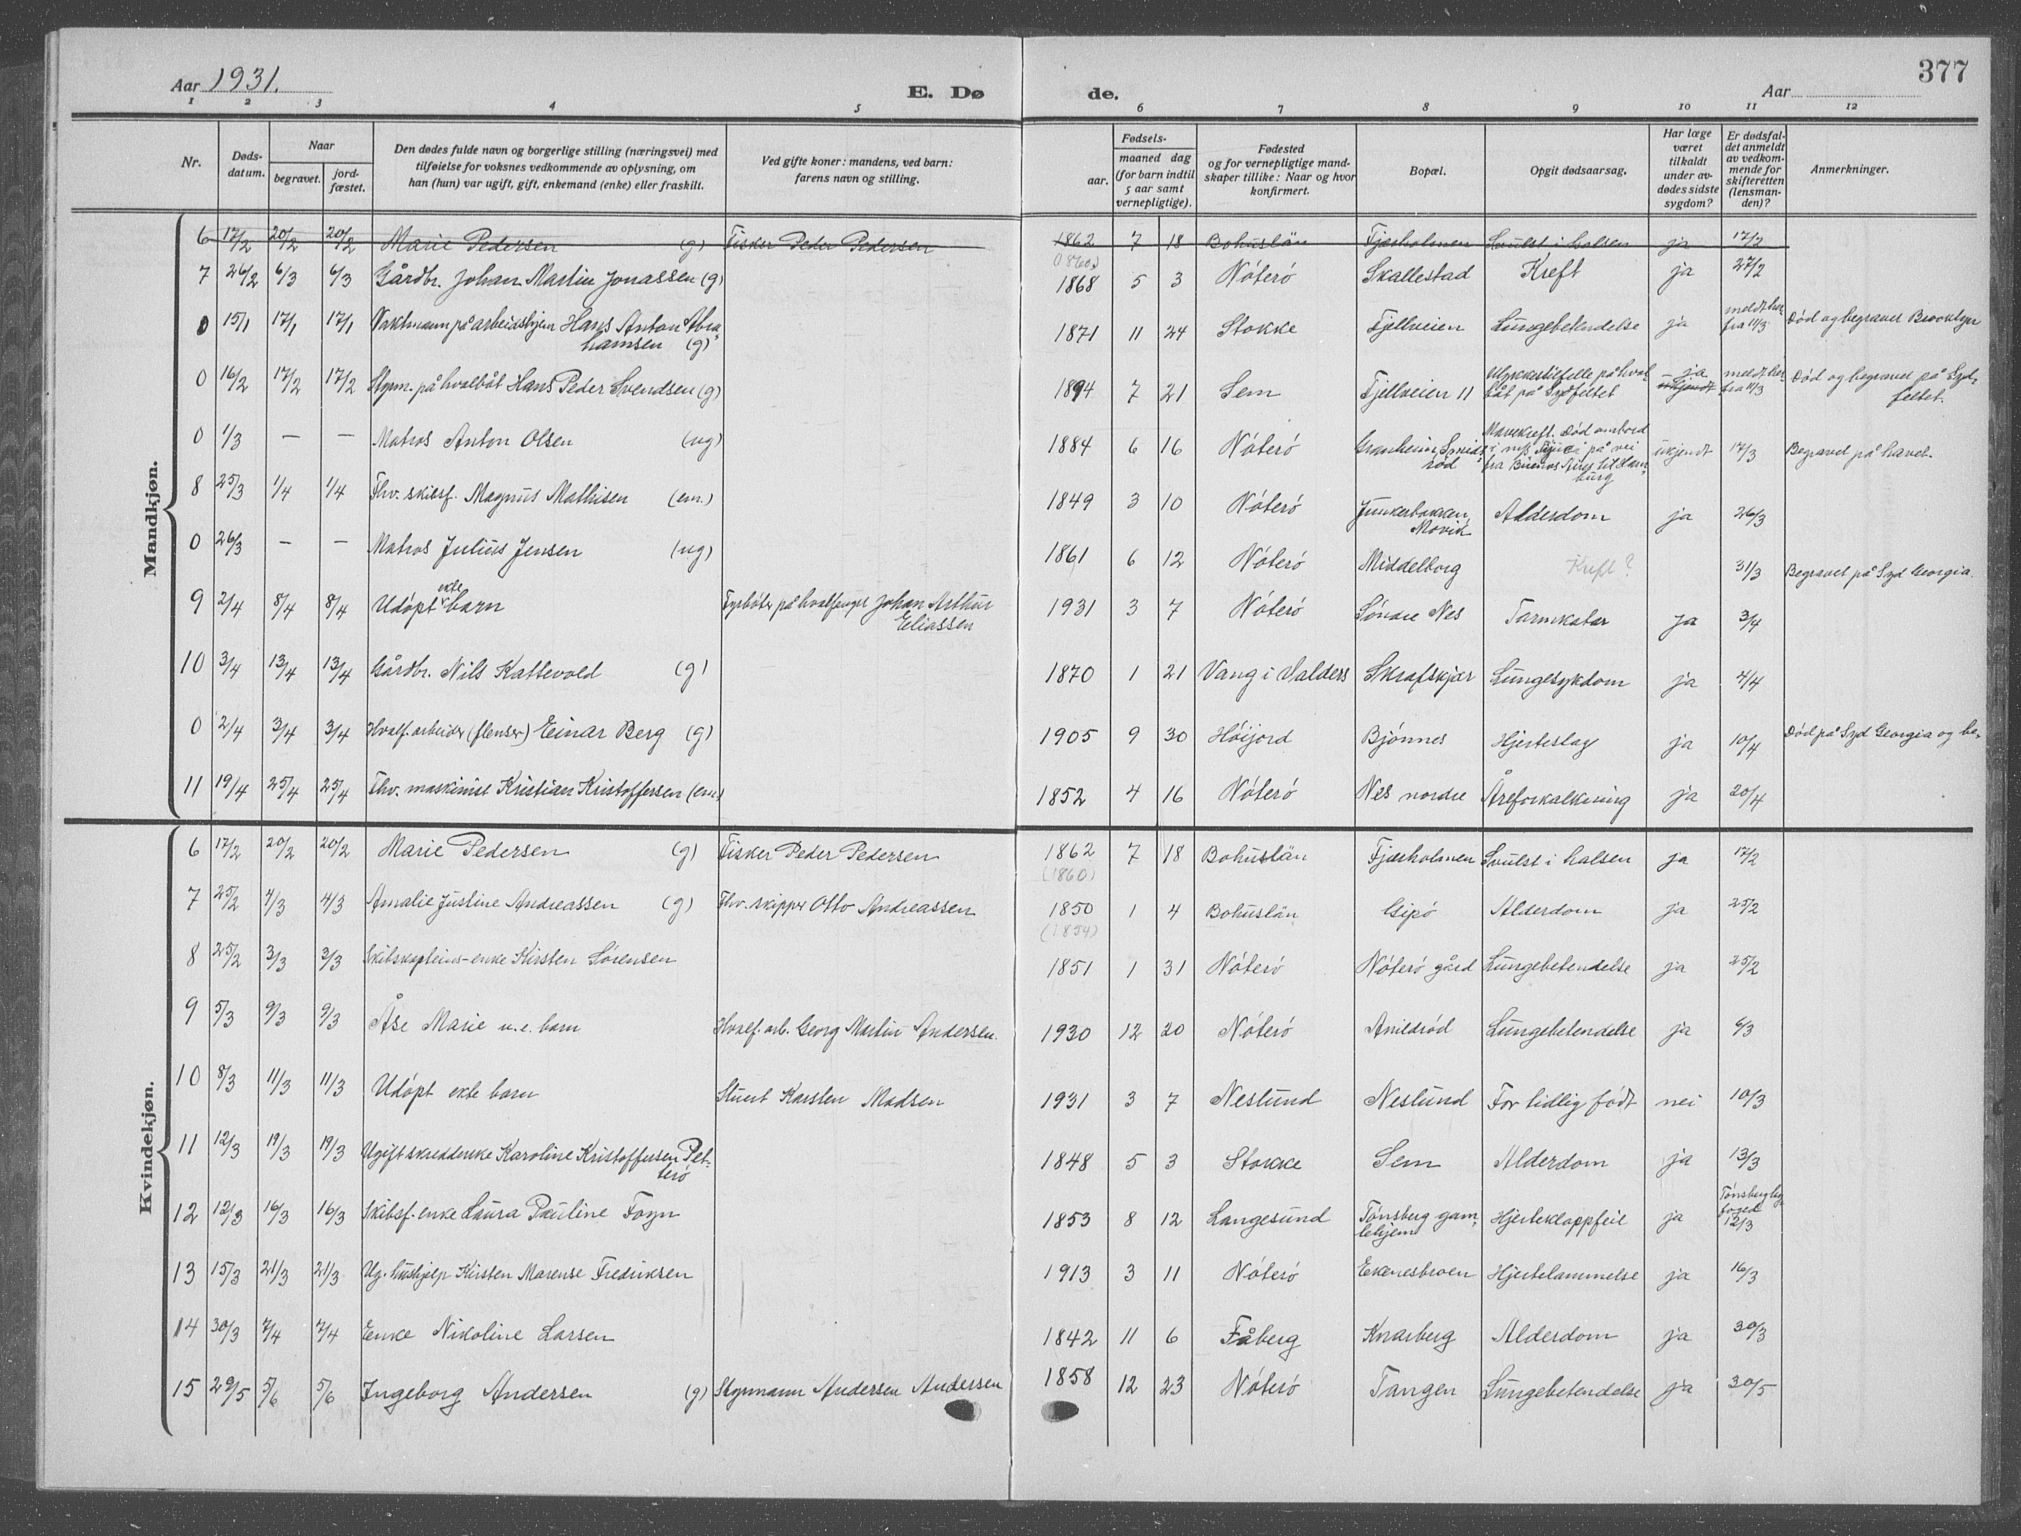 377
Aar 1931.
E. Dø de.
Aar
1 2 3 4 5 6 7 8 9 10 11 12
Nr.
Døds-datum.
Naar
begravet.
jord-fæstet.
Den dødes fulde navn og borgerlige stilling (næringsvei) med
tilføielse for voksnes vedkommende av oplysning, om
han (hun) var ugift, gift, enkemand (enke) eller fraskilt.
Ved gifte koner: mandens, ved barn:
farens navn og stilling.
Fødsels-
aar.
maaned dag
(for barn indtil
5 aar samt
vernepligtige).
Fødested
og for vernepligtige mand-
skaper tillike: Naar og hvor
konfirmert.
Bopæl.
Opgit dødsaarsag.
Har læge
været
tilkaldt
under av-
dødes sidste
sygdom?
Er dødsfal-
det anmeldt
av vedkom-
mende for
skifteretten
(lensman-
den)?
Anmerkninger.
Mandkjøn.
6 17/2 20/2 20/2 Marie Pedersen (g) Fisker Peder Pedersen 1862 7 18 Bohuslän Fjærholmen Svulst i halsen ja 17/2
(1860)
7 26/2 6/3 6/3 Gårdbr. Johan Martin Jonassen (g) 1868 5 3 Nøterø Skallestad Kreft ja 27/2
0 15/1 17/1 17/1 Vaktmann på arbeidshjem Hans Anton Abra-
hamsen (g) 1871 11 24 Stokke Fjellveien Lungebetendelse ja meldt her-
fra 11/3 Død og begravet Brooklyn
0 16/2 17/2 17/2 Styrm. på hvalbåt Hans Peder Svendsen (g) 1894 7 21 Sem Fjellveien 11 Ulykkestilfelle på hval-
båt på Sydfeltet ja ukjendt meldt her-
fra 11/3 Død og begravet på Syd-
feltet.
0 1/3 — — Matros Anton Olsen (ug) 1884 6 16 Nøterø Granheim Smids-
rød Mavekreft. Død ombord
i m/s på vei
fra Buenos Aires til Ham-
burg ukjendt 17/3 Begravet på havet.
8 25/3 1/4 1/4 Fhv. skibsf. Magnus Mathisen (em.) 1849 3 10 Nøterø Junkerbakken
Alderdom ja 26/3
0 26/3 — — Matros Julius Jensen (ug) 1861 6 12 Nøterø Middelborg Kreft? 31/3 Begravet på Syd Georgia.
9 2/4 8/4 8/4 Udøpt ekte barn Fyrbøter på hvalfanger Johan Arthur
Eliassen 1931 3 7 Nøterø Søndre Nes Tarmkatar ja 3/4
10 3/4 13/4 13/4 Gårdbr. Nils Kattevold (g) 1870 1 21 Vang i Valders Skrafskjær Lungesykdom ja 4/4
0 2/4 3/4 3/4 Hvalf. arbeider (flenser) Einar Berg (g) 1905 9 30 Høijord Bjønnes Hjerteslag ja 10/4 Død på Syd Georgia og be-
11 19/4 25/4 25/4 Fhv. maskinist Kristian Kristoffersen (em.) 1852 4 16 Nøterø Nes nordre Åreforkalkning ja 20/4
Kvindekjøn.
6 17/2 20/2 20/2 Marie Pedersen (g) Fisker Peder Pedersen 1862 7 18 Bohuslän Fjærholmen Svulst i halsen ja 17/2
(1860)
7 25/2 4/3 4/3 Amalie Justine Andreassen (g) Fhv. skipper Otto Andreassen 1850 1 4 Bohuslän Gipø Alderdom ja 25/2
(1854)
8 25/2 3/3 3/3 Skibskapteins-enke Kirsten Sørensen 1851 1 31 Nøterø Nøterø gård Lungebetendelse ja 25/2
9 5/3 9/3 9/3 Åse Marie u.e. barn Hvalf. arb. Georg Martin Andersen. 1930 12 20 Nøterø Arnildrød Lungebetendelse ja 6/3
10 8/3 11/3 11/3 Udøpt ekte barn Stuert Karsten Madsen 1931 3 7 Neslund Neslund For tidlig født nei 10/3
11 12/3 19/3 19/3 Ugift skredderske Karoline Kristoffersen Pet-
terø 1848 5 3 Stokke Sem Alderdom ja 13/3
12 12/3 16/3 16/3 Skibsf. enke Laura Pauline Foyn 1853 8 12 Langesund Tønsberg gam-
lehjem Hjerteklappfeil ja Tønsberg by-
foged
12/3
13 15/3 21/3 21/3 Ug. hushjelp Kirsten Marense Fredriksen 1913 3 11 Nøterø Ekenesbroen Hjertelammelse ja 16/3
14 30/3 7/4 7/4 Enke Nikoline Larsen 1842 11 6 Fåberg Knarberg Alderdom ja 30/3
15 29/5 5/6 5/6 Ingeborg Andersen (g) Styrmann Andersen Andersen 1858 12 23 Nøterø Tangen Lungebetendelse ja 30/5